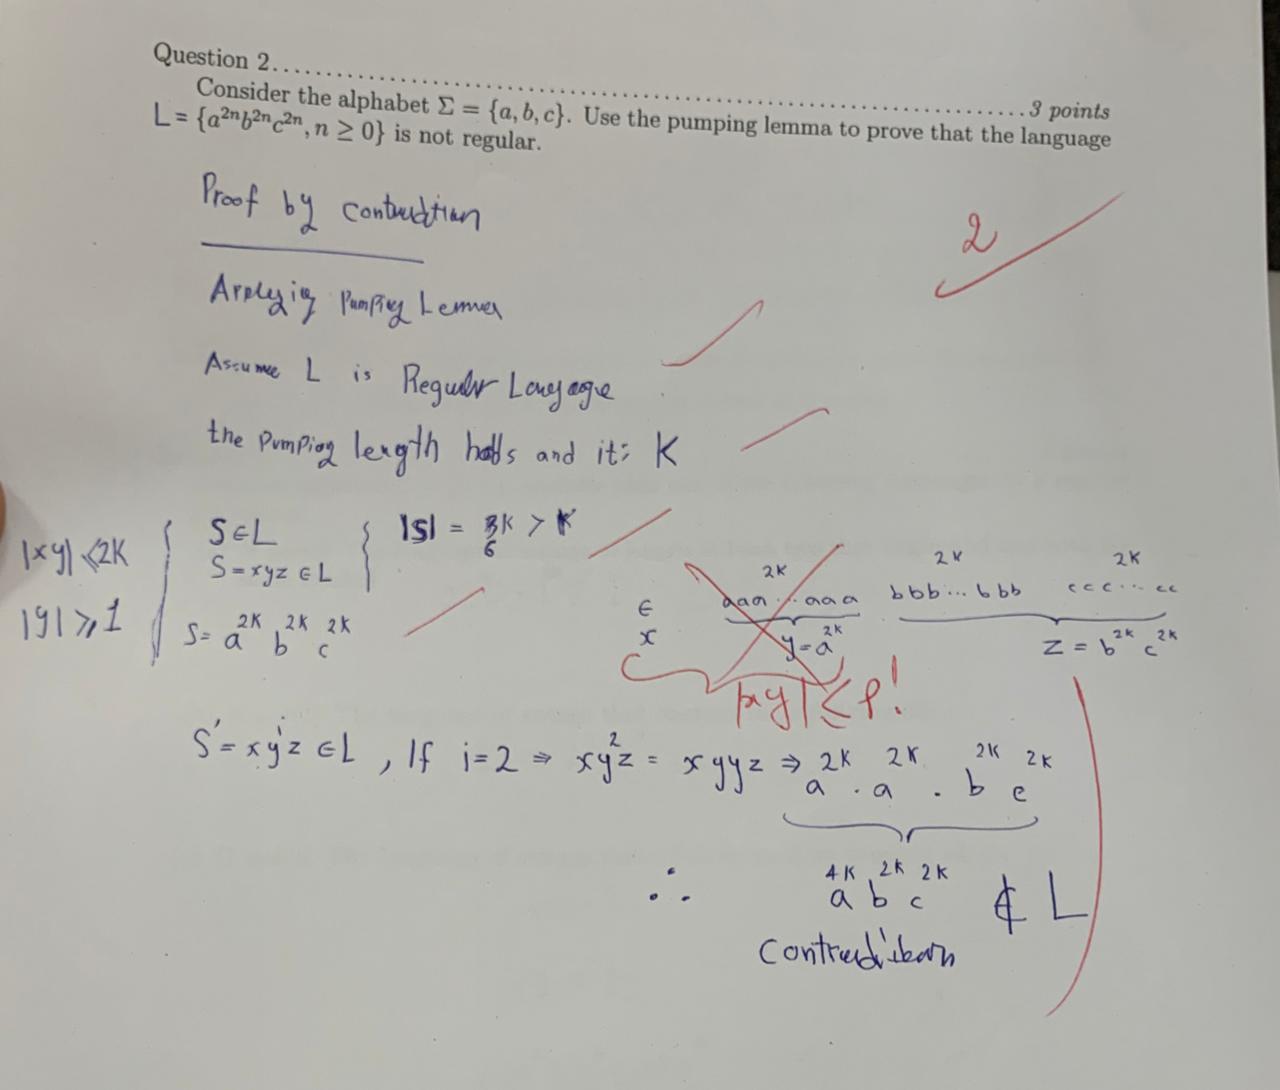 Question 2..........3 points
Consider the alphabet Σ = {a, b, c}. Use the pumping lemma to prove that the language
L = {a²ⁿb²ⁿc²ⁿ, n ≥ 0} is not regular.
2
Proof by
Applying Pumping Lemma
Assume L is Regular Language
the Pumping length holds and it: K
|xy| ≤ 2K
|y| ≥ 1
S ∈ L
S = xyz ∈ L
S = a^2K b^2K c^2K
|S| = 6K > K
∈
x
2K 2K 2K
aaa...aaa bbb...bbb ccc...cc
y = a^2K
z = b^2K c^2K
|xy| ≤ P!
S' = xy^i z ∈ L , If i=2 ⇒ xy²z = xyyz ⇒ a^2K . a^2K . b^2K c^2K
∴ a^4K b^2K c^2K ∉ L